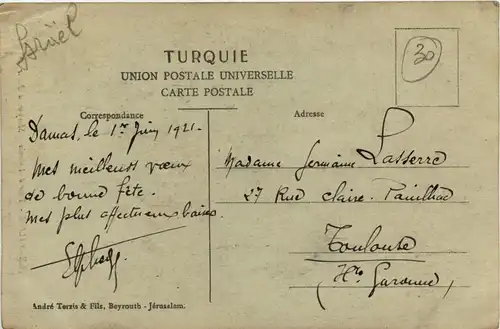 Israël
30
TURQUIE
UNION POSTALE UNIVERSELLE
CARTE POSTALE
Correspondance
Adresse
Damas, le 1er Juin 1921.
Mes meilleurs vœux
de bonne fête.
Mes plus affectueux baisers
Madame Germaine Lasserre
27 Rue Claire Pauilhac
Toulouse
(Hte Garonne)
André Terzis & Fils, Beyrouth - Jérusalem.